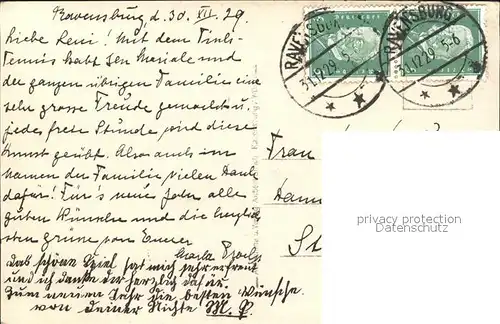 Ravensburg, d. 30. XII. 29.
Liebe Reni! Mit dem Tisch-
Tennis habt Ihr Mariele und
der ganzen übrigen Familie eine
sehr große Freude gemacht u.
jede freie Stunde wird diese
Kunst geübt. Also auch im
Namen der Familie vielen Dank
dafür! Für's neue Jahr alle
guten Wünsche und die herzlich-
sten Grüße von Eurer
Das schöne Spiel hat mich sehr erfreut
und ich danke dir herzlich dafür.
Zum neuen Jahr die besten Wünsche
von deiner Nichte M. P.
RAVENSBURG
31.12.29. 5-6
RAVENSBURG
31.12.29. 5-6
Frau
St
privacy protection
watermark